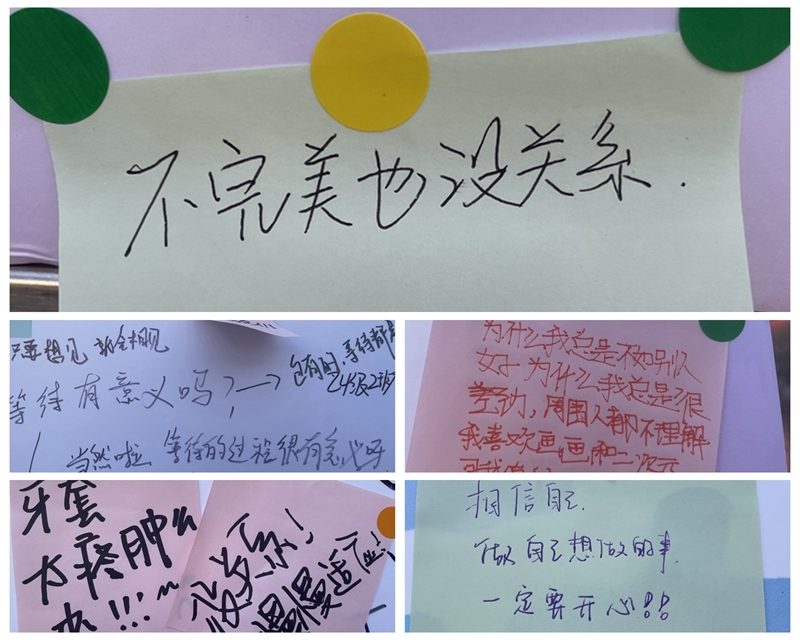 不完美也没关系.
只要想见 就会相见
等待有意义吗？→ 包有的,等待都
24级2班
当然啦 等待的过程很有意义呀
为什么我总是不如别人
好 为什么我总是很
差劲，周围人都不理解
我喜欢画画和二次元
牙套
太疼肿么
办!!!~
没关系!
慢慢适应!
相信自己.
做自己想做的事.
一定要开心!!